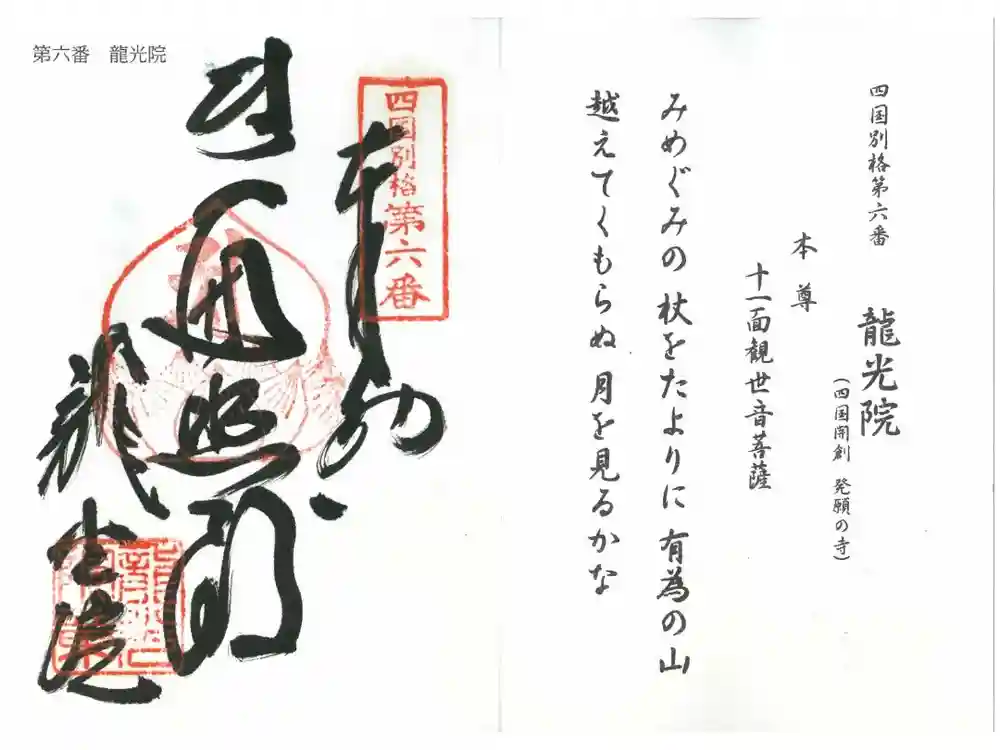 第六番　龍光院
四国別格第六番
奉納
遍照殿
龍光院
四国別格第六番
龍光院
(四国開創 発願の寺)
本尊
十一面観世音菩薩
みめぐみの 杖をたよりに 有為の山
越えてくもらぬ 月を見るかな